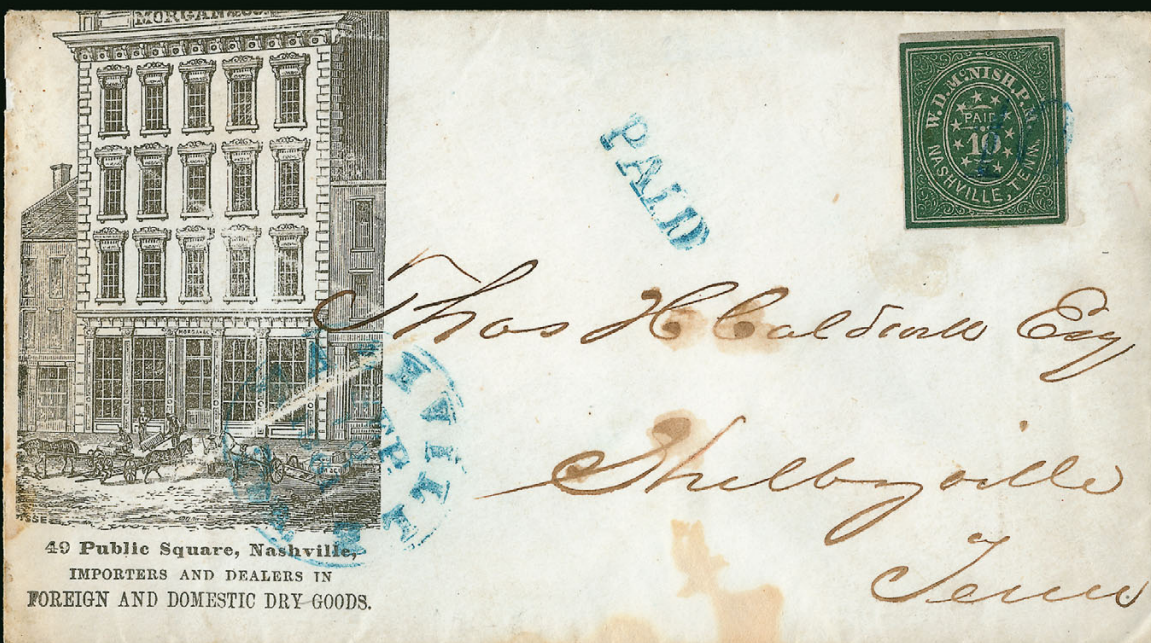 MORGAN & CO.
MORGAN &
49 Public Square, Nashville,
IMPORTERS AND DEALERS IN
FOREIGN AND DOMESTIC DRY GOODS.
PAID
W. D. McNISH, P. M.
PAID
10
NASHVILLE, TENN.
10
Thos H Caldwell Esq
Shelbyville
Tenn